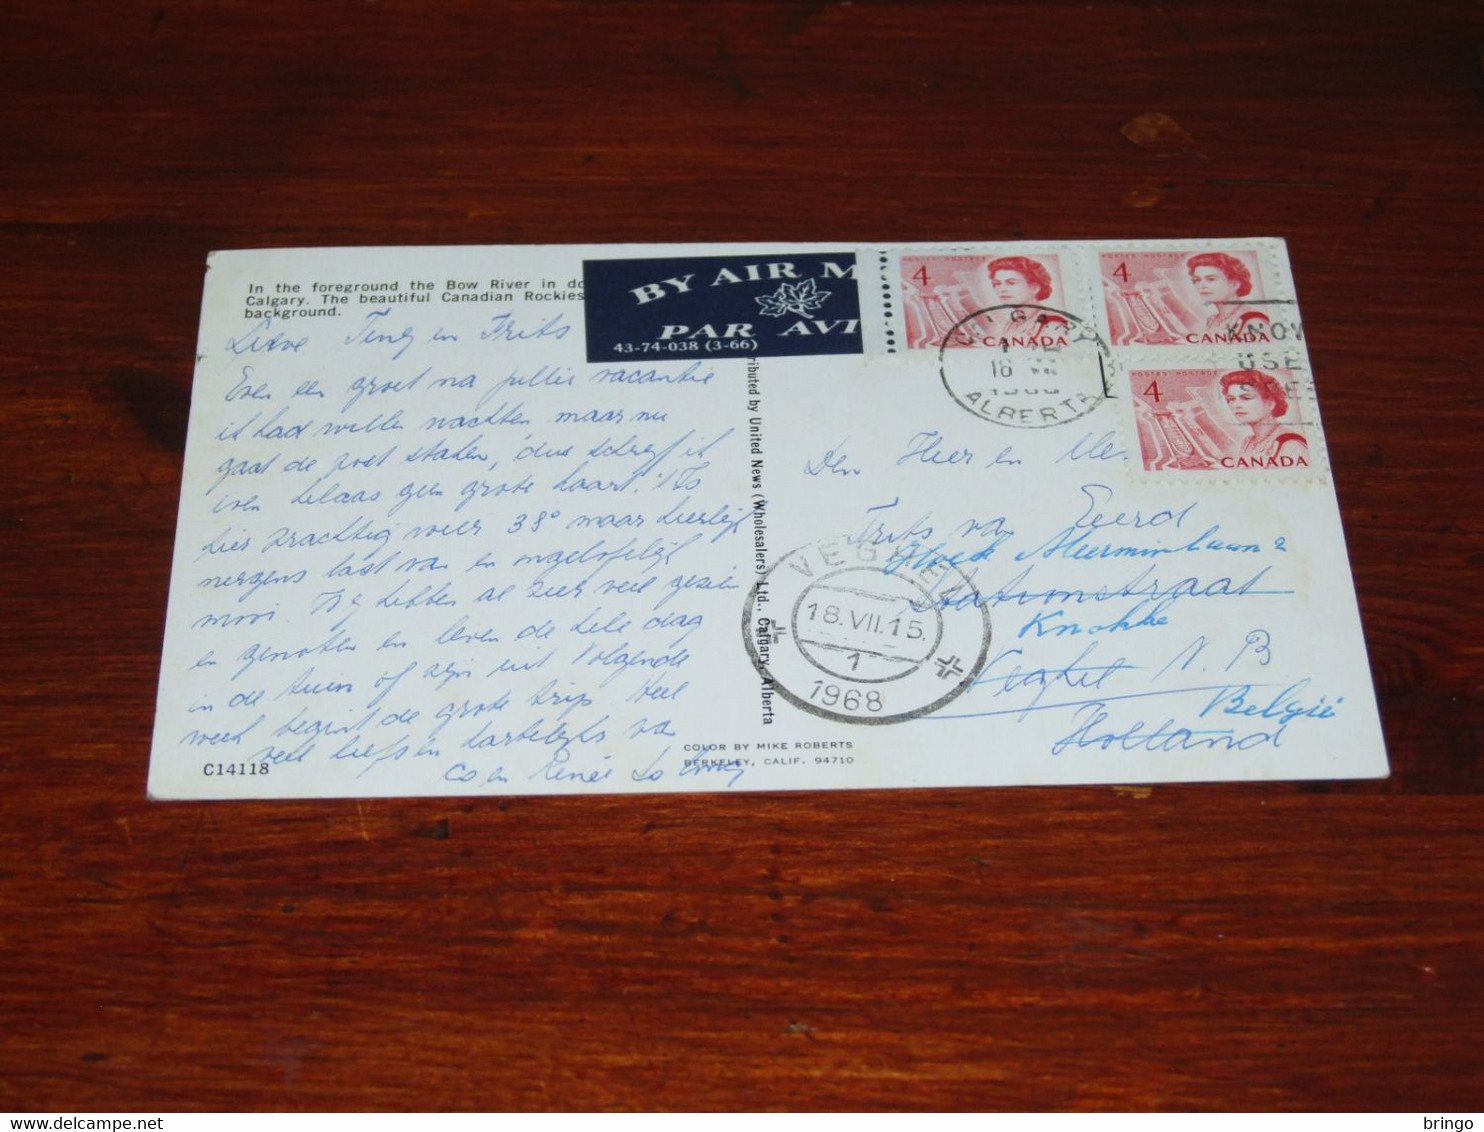 In the foreground the Bow River in do
Calgary. The beautiful Canadian Rockies
background.
BY AIR M
PAR AVI
43-74-038 (3-66)
Lieve Teny en Frits
Even een groet na jullie vacantie
ik had willen wachten maar nu
gaat de post staken, dus schrijf ik
even helaas geen grote kaart. 't Is
hier prachtig weer 38° maar heerlijk
nergens last van en ongelofelijk
mooi. Wij hebben al zeer veel gezien
en genoten en leven de hele dag
in de tuin of zijn uit. Volgende
week begint de grote trip. Heel
veel liefs en hartelijks va
Co en Renée
C14118
ributed by United News (Wholesalers) Ltd., Calgary, Alberta
COLOR BY MIKE ROBERTS
BERKELEY, CALIF. 94710
4
POSTES POSTAGE
CANADA
4
POSTES POSTAGE
CANADA
4
POSTES POSTAGE
CANADA
CALGARY
18
ALBERTA
KNOW
USE
Den Heer en Mev
Frits van Eerd
Hoek Meerminlaan 2
Stationstraat
Knokke
Veghel N.B
België
Holland
VEGHEL
18.VII.15.
1
1968
delcampe.net
bringo